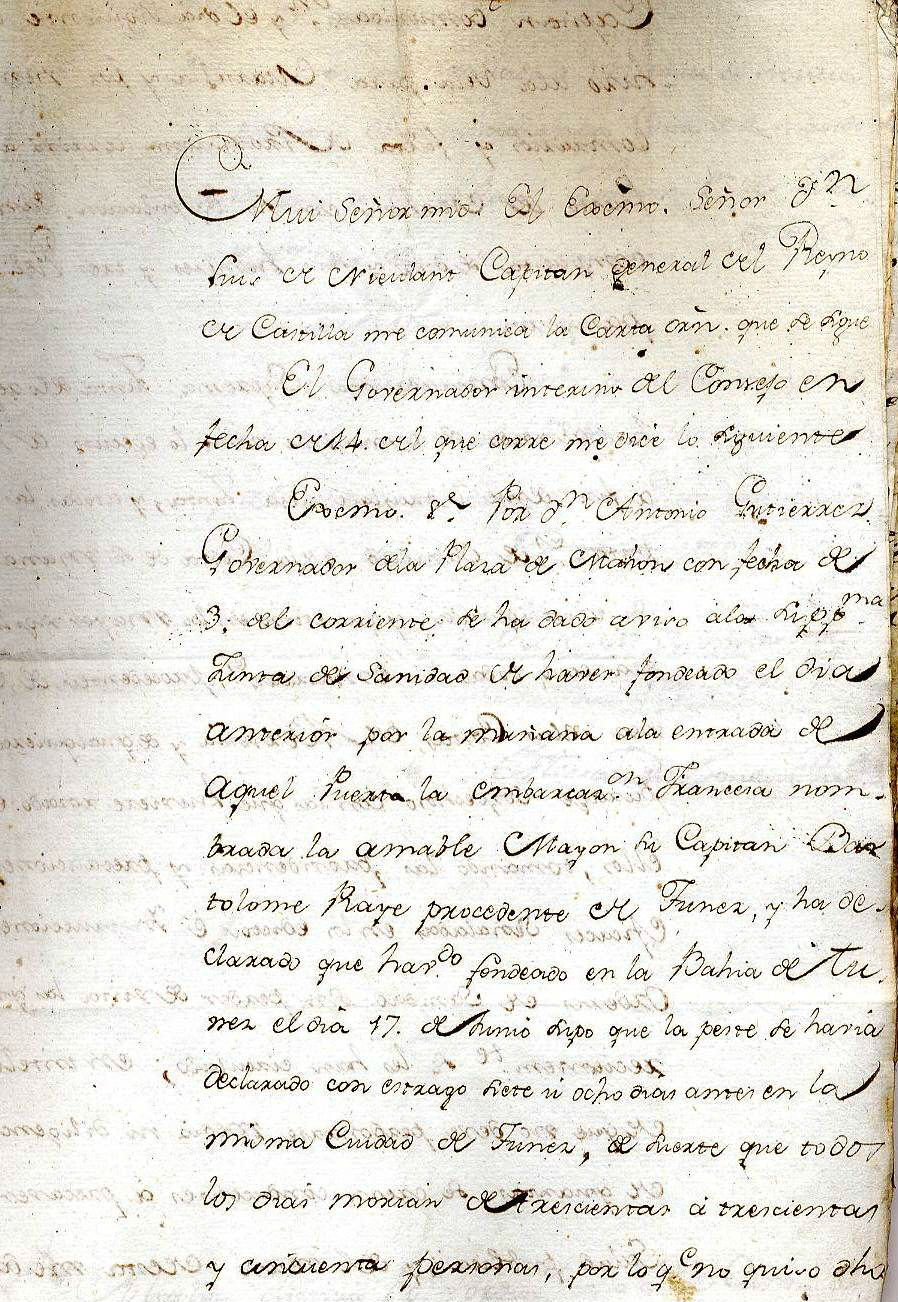 Mui Señor mio: El Excmo. Señor Dn
Luis de Nieulant Capitan General del Reyno
de Castilla me comunica la Carta orn. que se sigue
El Governador interino del Consejo en
fecha de 14. del que corre me dice lo siguiente
Excmo. Sr. Por Dn Antonio Gutierrez
Governador dela Plaza de Mahon con fecha de
3. del corriente se ha dado aviso ala Supma
Junta de Sanidad de haver fondeado el dia
anterior por la mañana ala entrada de
aquel Puerto la embarcazon Francesa nom-
brada la amable Mayon su Capitan Bar
tolome Raye procedente de Tunez, y ha de-
clarado que havdo fondeado en la Bahia de Tu-
nez el dia 17. de Junio supo que la peste se havia
declarado con estrago siete ù ocho dias antes en la
misma Cuidad de Tunez, de suerte que todos
los dias morian de trescientas à trescientas
y cincuenta personas, por lo qe no quiso dho